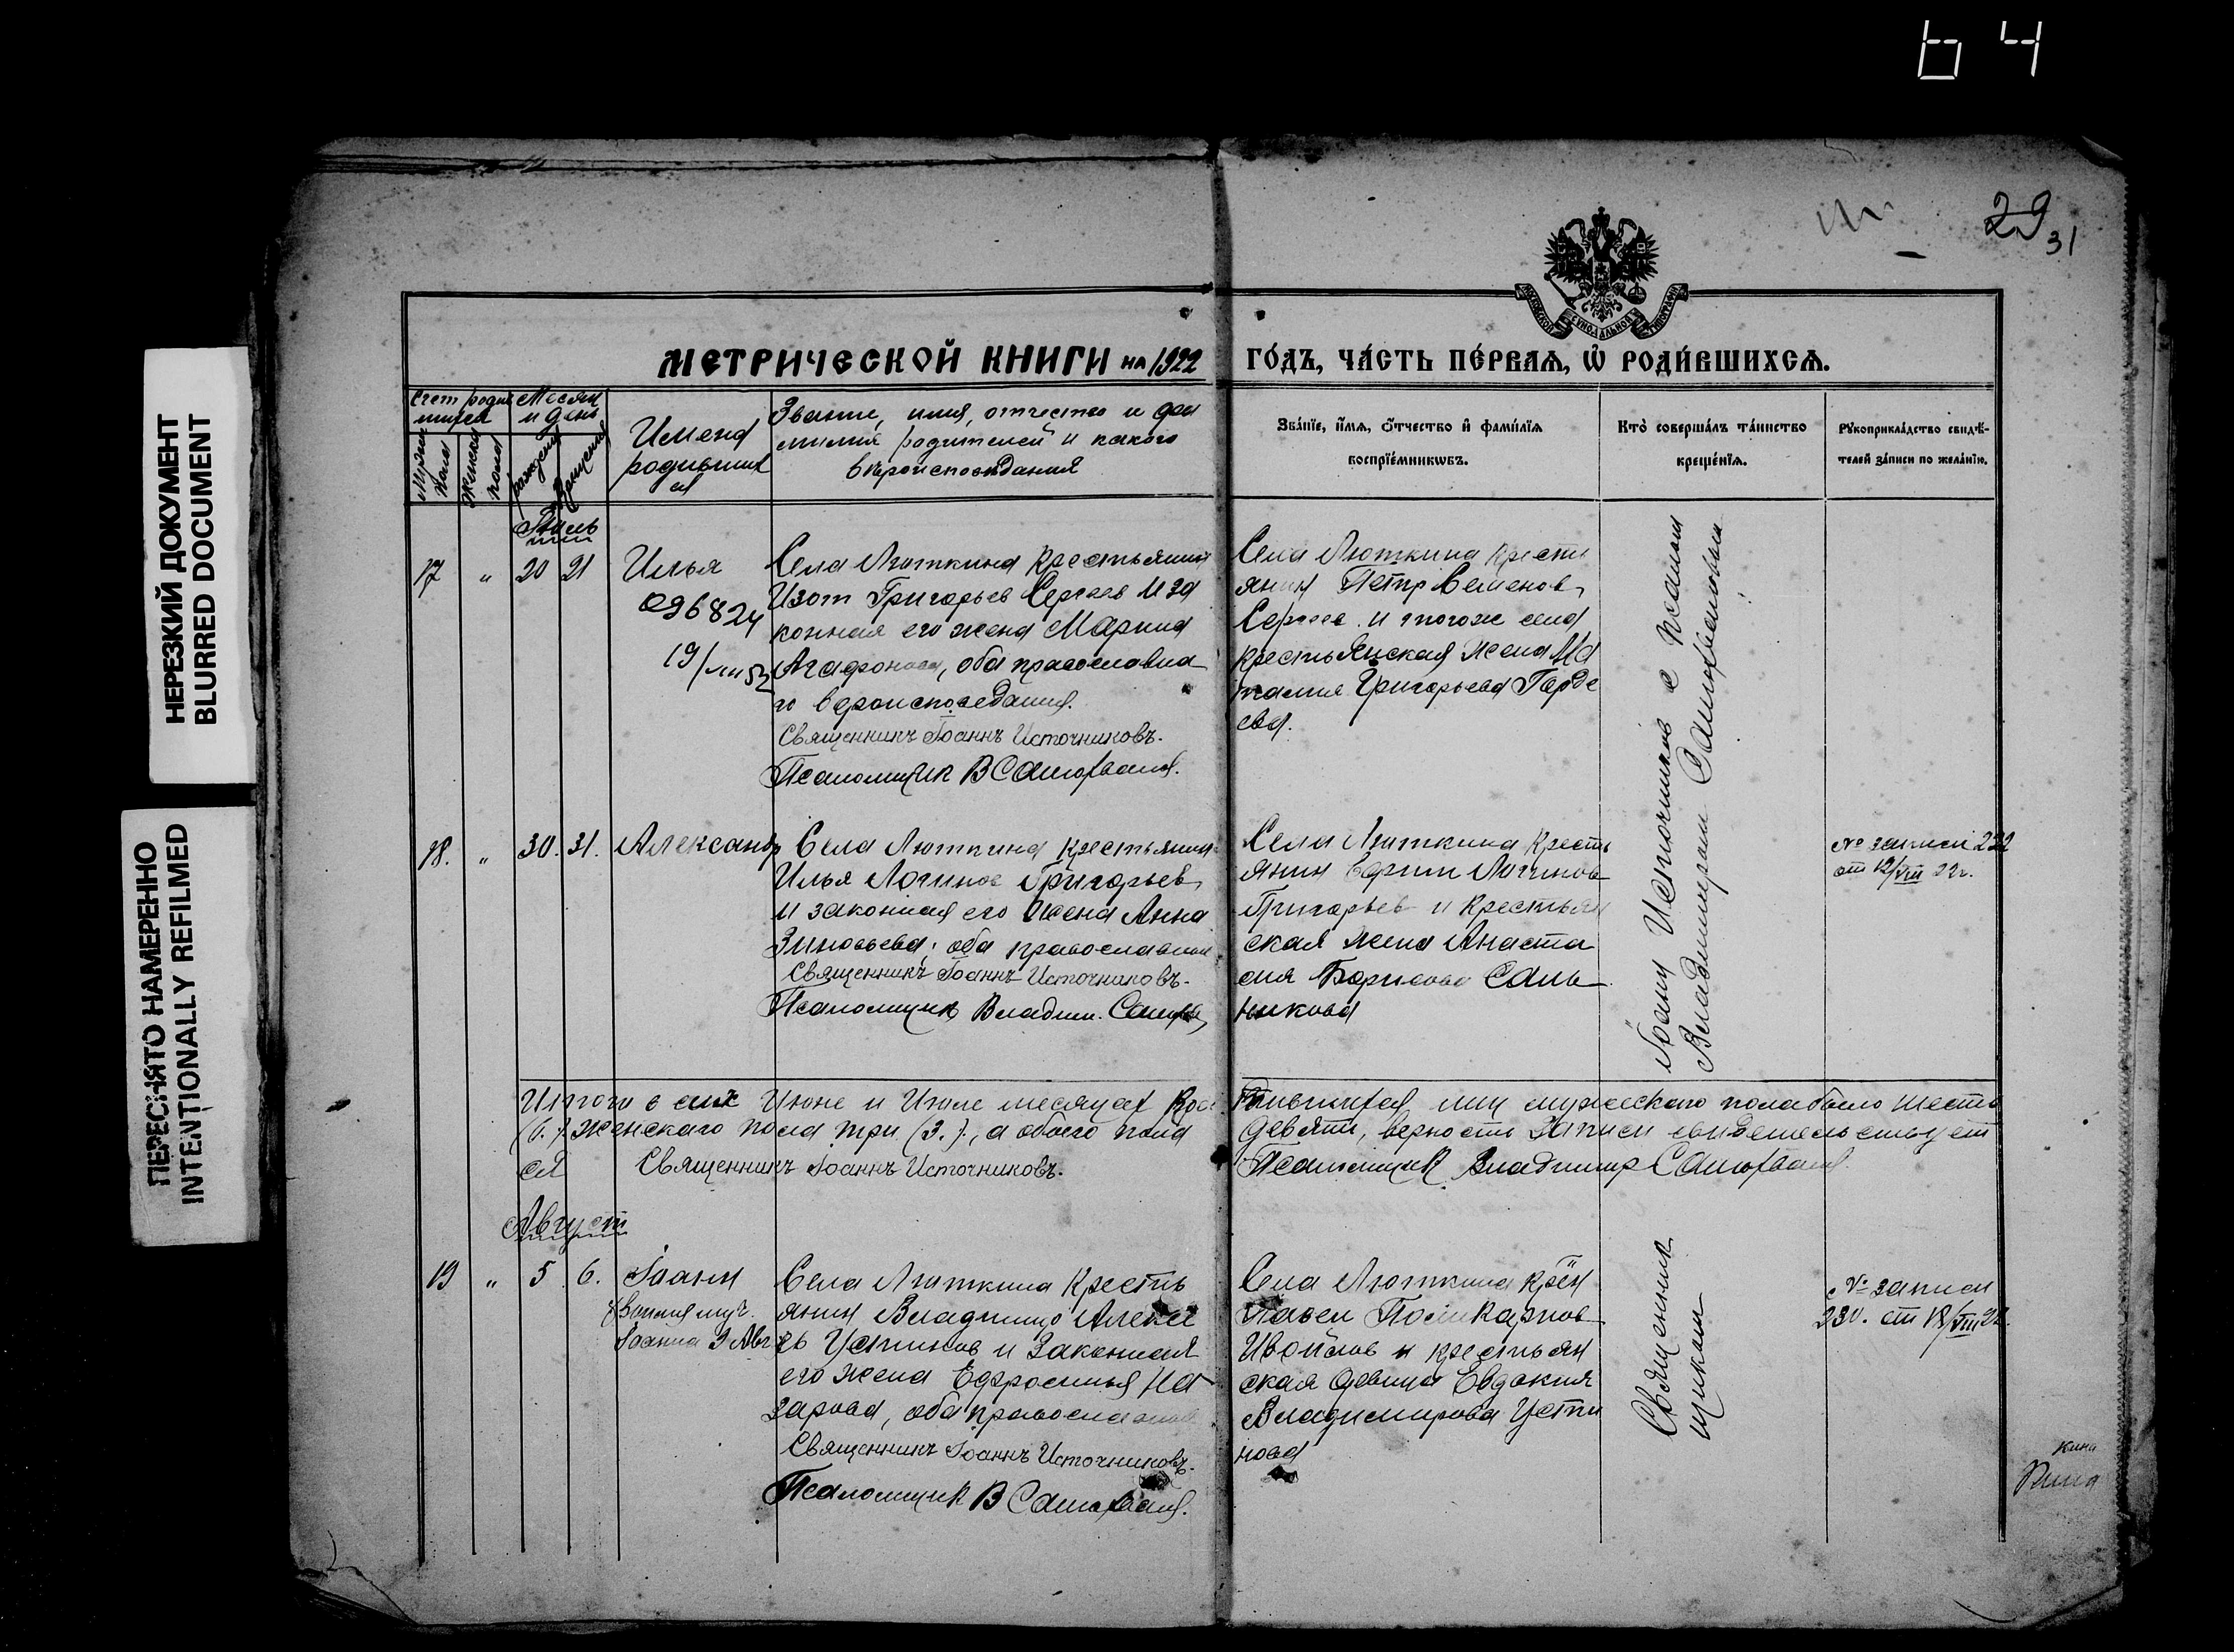 64
НЕРЕЗКИЙ ДОКУМЕНТ
BLURRED DOCUMENT
ПЕРЕСНЯТО НАМЕРЕННО
INTENTIONALLY REFILMED
29
31
МЕТРИЧЕСКОЙ КНИГИ НА 1922
ГО́ДЪ, ЧА́СТЬ ПЕ́РВАѦ, Ѡ҆ РОДИ́ВШИХСѦ.
Счет родив
шихся
Месяц
и день
Мужска
пола
Женска
пола
рождения
крещения
Имена
родивших
ся
Звание, имя, отчество и фа
милия родителей и какого
вероисповедания
Зва́нїе, и҆́мѧ, ѻ҆́тчество и҆ фами́лїѧ
воспрїе́мникѡвъ.
Кто̀ соверша́лъ та́инство
креще́нїѧ.
Рꙋкоприкла́дство свидѣ́-
телей за́писи по жела́нїю.
Июль
17 " 20 21 Илья
096824
19/
Села Люткина крестьянин
Изот Григорьев Сергеев и за
конная его жена Марина
Агафонова, оба православна
го вероисповедания.
Священникъ Іоаннъ Источниковъ.
Псаломщик В
Села Люткина кресть
янин Петр Семенов
Сергеев и тогож села
крестьянская жена На
талия Григорьева Горде
ева.
Іоанн Источников с псалом
Владимиром
18. " 30. 31. Александр
Села Люткина крестьянин
Илья Логинов Григорьев
и законная его жена Анна
Зиновьева, оба православн
Священникъ Іоаннъ Источниковъ.
Псаломщик Владим.
Села Люткина кресть
янин Ефрем Логинов
Григорьев и крестьян
ская жена Анаста
сия Борисова Саль
никова
№ записи 222
от 12/VIII 22г.
Итого в сих Июне и Июле месяцах
(6.) Женскаго пола три (3.), а обоего пола
ся Священникъ Іоаннъ Источниковъ.
лиц мужескаго пола было шесть
девять, верность записи свидетельствует
Псаломщик Владимир
Август
19 " 5 6. Іоанн
Іоанна 9 Авг.
Села Люткина кресть
янин Владимир Алексе
ев Устинов и законная
его жена Ефросинья На
зарова, оба православнов
Священникъ Іоаннъ Источниковъ.
Псаломщик В
Села Люткина крён
Павел Поликарпов
Ивойлов и крестьян
ская девица Евдокия
Владимирова Усти
нова
Священник
щиком
№ записи
230. от 18/VIII 22.
кина